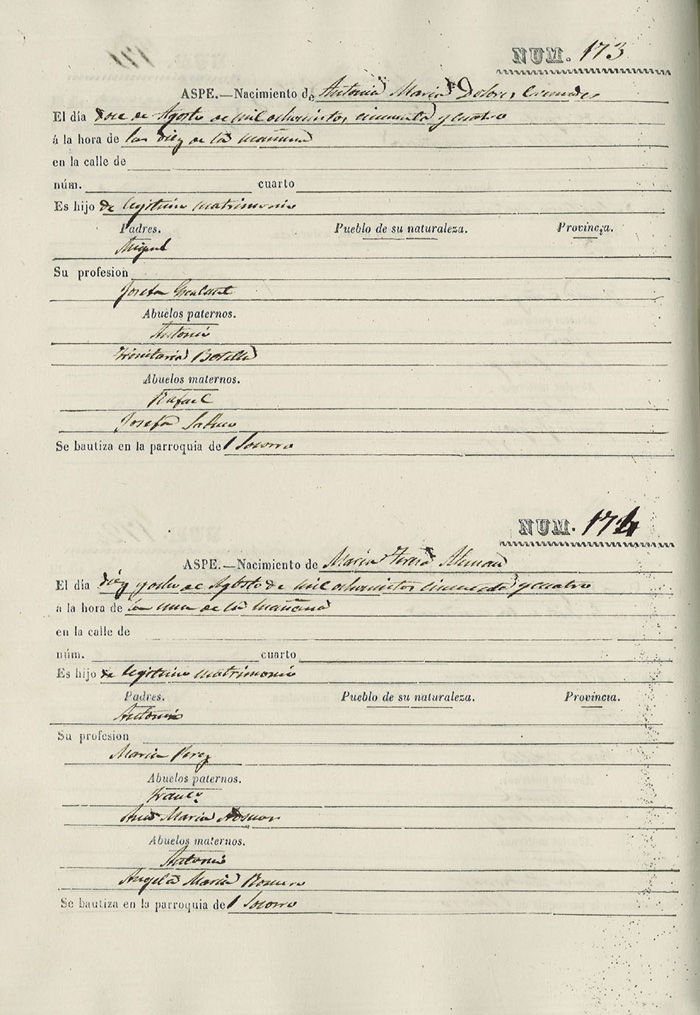 NUM. 173
ASPE.—Nacimiento de Antonia Maria Dolores
El día doce de Agosto de mil ochocientos cincuenta y cuatro
á la hora de las diez de la mañana
en la calle de
núm. cuarto
Es hijo de legitimo matrimonio
Padres. Pueblo de su naturaleza. Provincia.
Miguel
Su profesion
Josefa
Abuelos paternos.
Antonio
Trinitaria Botella
Abuelos maternos.
Rafael
Josefa
Se bautiza en la parroquia del Socorro
NUM. 174
ASPE.—Nacimiento de Maria Teresa Aleman
El día diez y ocho de Agosto de mil ochocientos cincuenta y cuatro
á la hora de la una de la mañana
en la calle de
núm. cuarto
Es hijo de legitimo matrimonio
Padres. Pueblo de su naturaleza. Provincia.
Antonio
Su profesion
Maria Perez
Abuelos paternos.
Franco
Ana Maria
Abuelos maternos.
Antonio
Angela Maria Romero
Se bautiza en la parroquia del Socorro